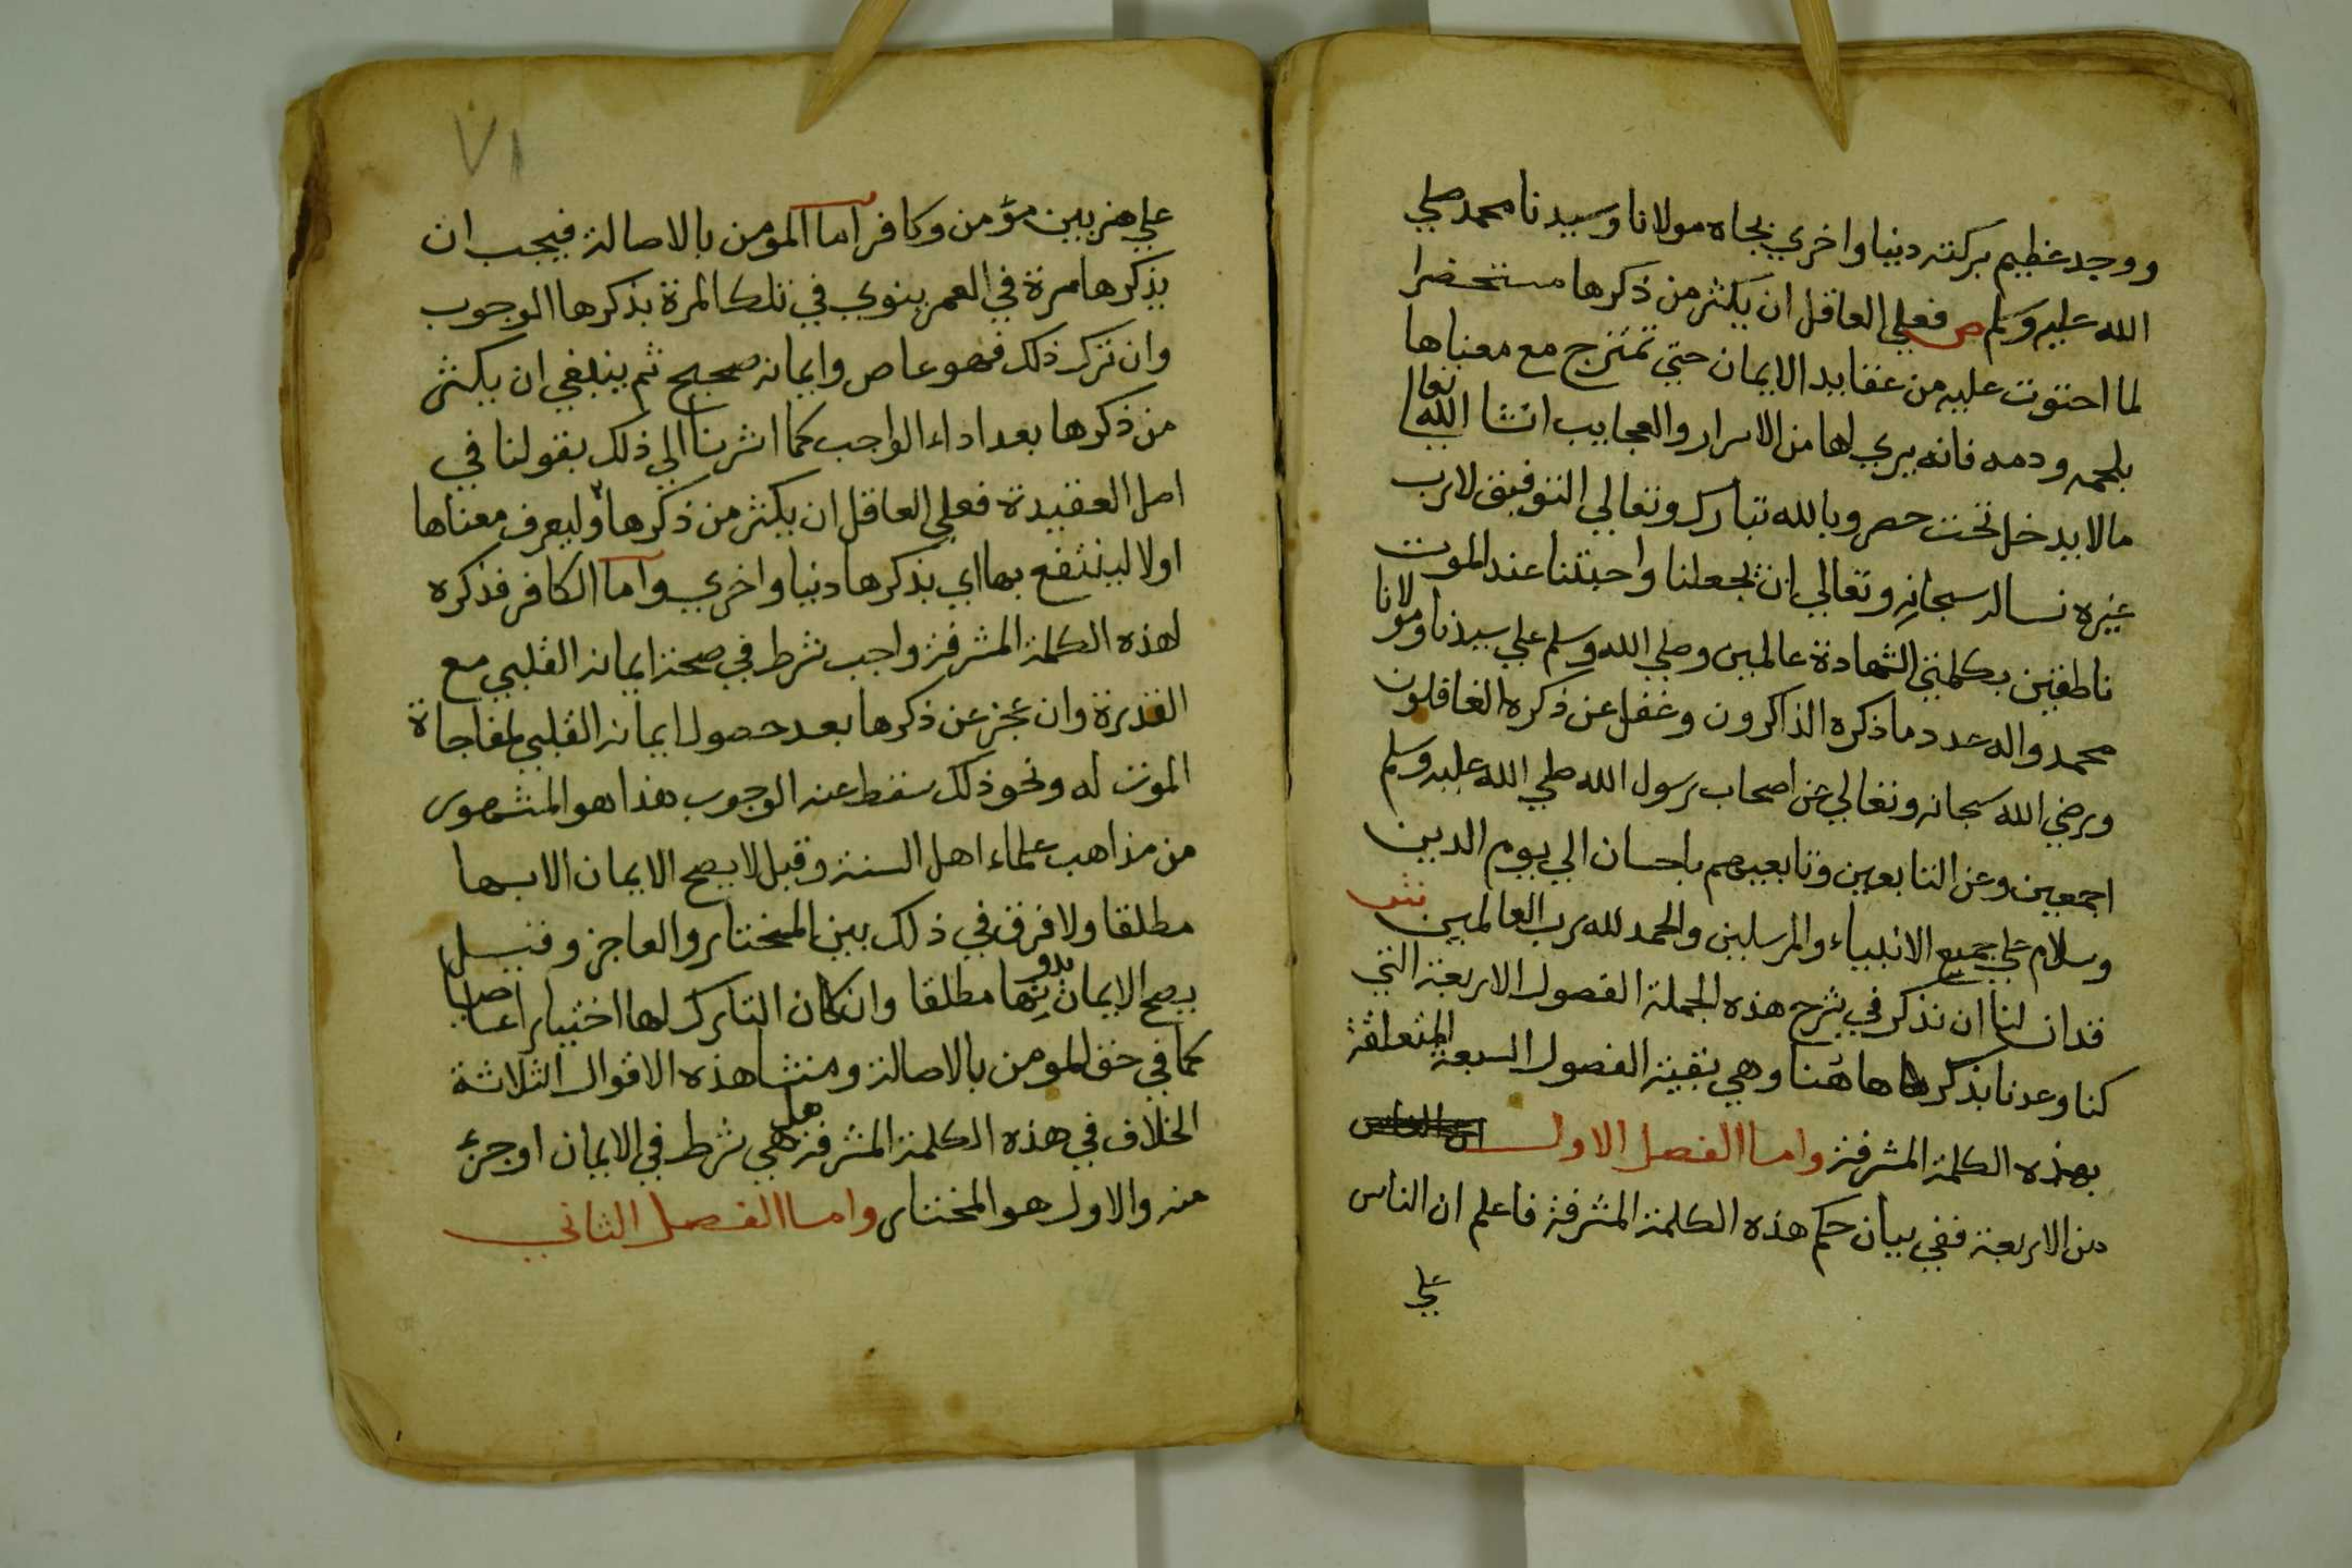 ووجد عظيم بركته دنيا واخري بجاه مولانا وسيدنا محمد صلي
الله عليه وسلم ص فعلي العاقل ان يكثر من ذكرها مستحضرا
لما احتوت عليه من عقايد الايمان حتي تمتزج مع معناها
بلحمه ودمه فانه يري لها من الاسرار والعجايب انشا الله تعالي
مالا يدخل تحت حصر وبالله تبارك وتعالي التوفيق لا رب
غيره نساله سبحانه وتعالي ان يجعلنا واحبتنا عند الموت
ناطقين بكلمتي الشهادة عالمين وصلي الله وسلم علي سيدنا ومولانا
محمد واله عدد ما ذكره الذاكرون وغفل عن ذكره الغافلون
ورضي الله سبحانه وتعالي عن اصحاب رسول الله صلي الله عليه وسلم
اجمعين وعن التابعين وتابعيهم باحسان الي يوم الدين
وسلام علي جميع الانبياء والمرسلين والحمد لله رب العالمين ش
قدان لنا ان نذكر في شرح هذه الجملة الفصول الاربعة التي
كنا وعدنا بذكرها هاهنا وهي بقية الفصول السبعة المتعلقة
بهذه الكلمة المشرفة واما الفصل الاول
من الاربعة ففي بيان حكم هذه الكلمة المشرفة فاعلم ان الناس
علي
٧١
علي ضربين مؤمن وكافر اما المومن بالاصالة فيجب ان
يذكرها مرة في العمر ينوي في تلك المرة بذكرها الوجوب
وان ترك ذلك فهو عاص وايمانه صحيح ثم ينبغي ان يكثر
من ذكرها بعد اداء الواجب كما اشرنا الي ذلك بقولنا في
اصل العقيدة فعلي العاقل ان يكثر من ذكرها وليعرف معناها
اولا لينتفع بها اي بذكرها دنيا واخري واما الكافر فذكره
لهذه الكلمة المشرفة واجب شرط في صحة ايمانه القلبي مع
القدرة وان عجز عن ذكرها بعد حصول ايمانه القلبي لمفاجاة
الموت له ونحو ذلك سقط عنه الوجوب هذا هو المشهور
من مذاهب علماء اهل السنة وقيل لا يصح الايمان الا بها
مطلقا ولا فرق في ذلك بين المختار والعاجز وقيل
يصح الايمان بدونها مطلقا وان كان التارك لها اختيارا عاصيا
كما في حق المومن بالاصالة ومنشا هذه الاقوال الثلاثة
الخلاف في هذه الكلمة المشرفة هل هي شرط في الايمان او جزؤ
منه والاول هو المختار واما الفصل الثاني